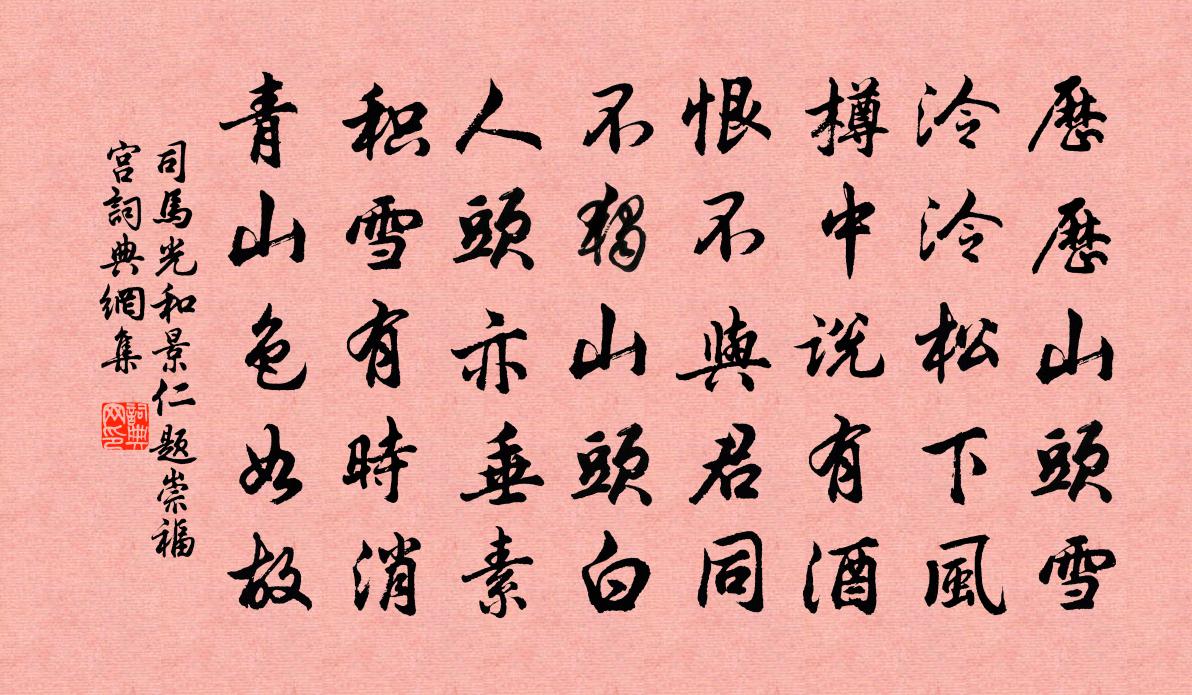 歷歷山頭雪
泠泠松下風
樽中说有酒
恨不與君同
不獨山頭白
人頭亦垂素
积雪有時消
青山色如故
司馬光和景仁题崇福
宫詞典網集
詞典网印